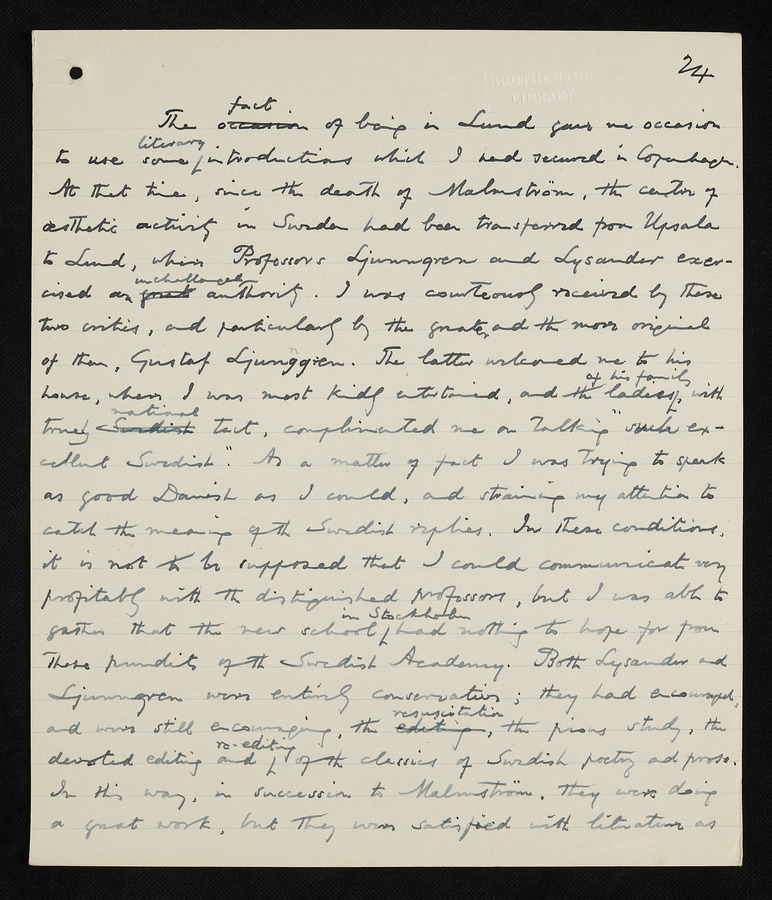 24
BROTHERTON
LIBRARY
fact
The occasion of being in Lund gave me occasion
literary
to use some introductions which I had secured in Copenhagen.
At that time, since the death of Malmström, the centre of
æsthetic activity in Sweden had been transferred from Upsala
to Lund, where Professors Ljunngren and Lysander exer-
unchallenged
cised an great authority. I was courteously received by these
two critics, and particularly by the greater and the more original
of them, Gustaf Ljunggren. The latter welcomed me to his
of his family
house, where I was most kindly entertained, and the ladies, with
national
truely Swedish tact, complimented me on talking "such ex-
cellent Swedish". As a matter of fact I was trying to speak
as good Danish as I could, and straining my attention to
catch the meaning of the Swedish replies. In these conditions,
it is not to be supposed that I could communicate very
profitably with the distinguished professors, but I was able to
in Stockholm
gather that the new school had nothing to hope for from
these pundits of the Swedish Academy. Both Lysander and
Ljunngren were entirely conservative; they had encouraged,
resuscitation
and were still encouraging, the editing, the pious study, the
re-editing
devoted editing and of the classics of Swedish poetry and prose.
In this way, in succession to Malmström, they were doing
a great work, but they were satisfied with literature as